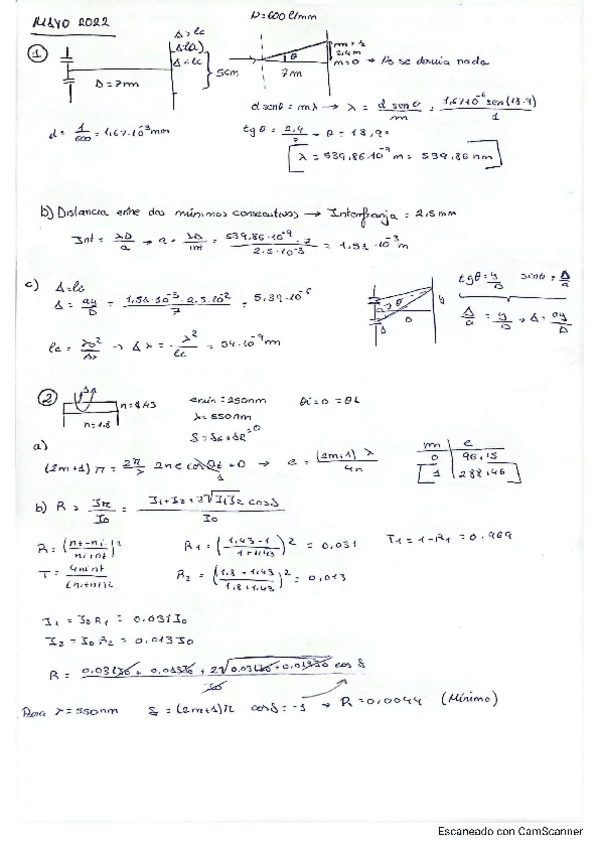 MAYO 2022
N=600 l/mm
①
Δ>lc
Δ=lc
5cm
D=7m
θ
7m
2,4m
m=0 → No se desvía nada
d senθ = mλ → λ = d senθ / m = 1,67·10⁻⁶ sen(18.9) / 1
d = 1/600 = 1,67·10⁻³ mm
tgθ = 2,4/7 → θ = 18,9º
λ = 539,86·10⁻⁹ m = 539,86 nm
b) Distancia entre dos mínimos consecutivos → Interfranja = 2,5mm
Int = λD/a → a = λD/int = 539,86·10⁻⁹·7 / 2.5·10⁻³ = 1,51·10⁻³ m
c) Δ=lc
Δ = ay/D = 1,51·10⁻³·2,5·10⁻² / 7 = 5,39·10⁻⁶
tgθ = y/D senθ = Δ/a
Δ/a = y/D → Δ = ay/D
lc = λ₀²/Δλ → Δλ = λ²/lc = 54·10⁻⁹ m
②
n=1,43
n=1.8
emin = 250nm θi=0=θt
λ=550nm
a)
(2m+1)π = 2π/λ 2ne cosθt + 0 → e = (2m+1)λ / 4n
m e
0 96,15
1 288,46
b) R = IR/I₀ = I₁+I₂+2√I₁I₂ cosδ / I₀
R = (nt-ni / ni+nt)²
R₁ = (1,43-1 / 1+1,43)² = 0,031
T₁ = 1-R₁ = 0.969
T = 4nint / (ni+nt)²
R₂ = (1,8-1,43 / 1,8+1,43)² = 0,013
I₁ = I₀R₁ = 0.031I₀
I₂ = I₀R₂ = 0,013I₀
R = 0,031I₀ + 0,013I₀ + 2√0,031I₀·0,013I₀ cosδ / I₀
Para λ=550nm δ=(2m+1)π cosδ=-1 → R=0,0044 (Mínimo)
Escaneado con CamScanner